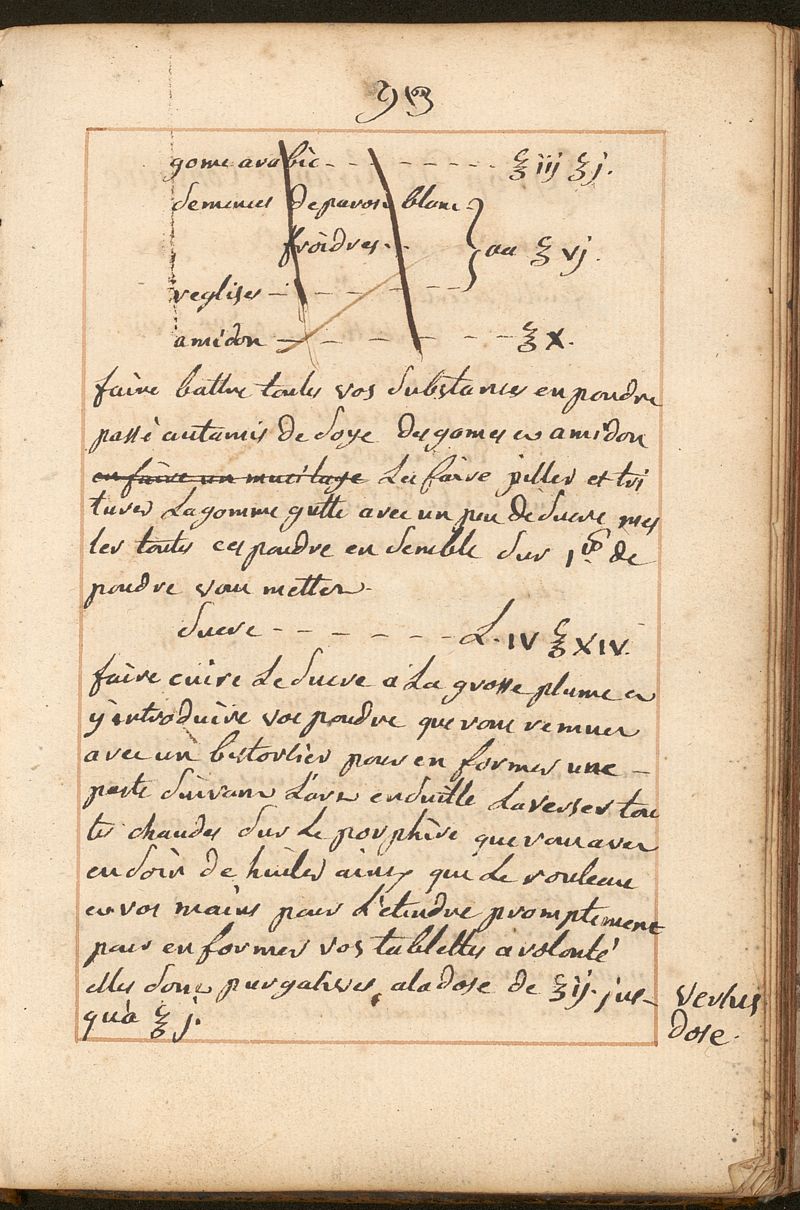 93
gome arabic - - - - - - - - ℥ iij ℥ j.
semences de pavos blanc
froides - -
aa ℥ vj.
reglises - - - - - -
amidon - - - - - - ℥ X.
faire battre toutes vos substances en poudre
passé au tamis de soye des gomes et amidon
en faire un mucilage Les faire piller et tri
turer La gomme gutte avec un peu de sucre mes
ler toutes ces poudre en semble sur 1 lb de
poudre vous metter.
sucre - - - - - - L. IV ℥ XIV.
faire cuire Le sucre a La grosse plume et
y introduire vos poudre que vous remuer
avec un bistortier pour en former une -
paste suivant L'art ensuitte La verser tou
tes chaudes sur Le porphire que vous aves
en soin de huiler ainsy que Le rouleau
et vos mains pour L'etendre promptement
pour en former vos tablettes a volonté
elles sont purgatives, a la dose de ℥ ij. jus-
qu'a ℥ j.
vertus
dose.